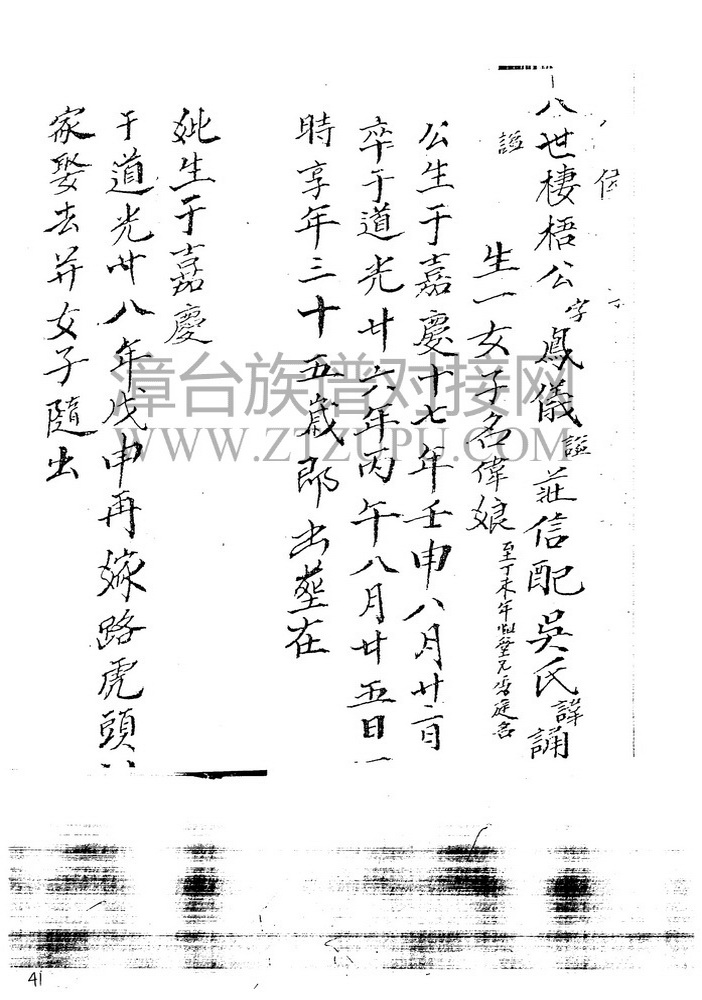 八世棲梧公字鳳儀謚莊信配吳氏諱誦
謚
生一女子名偉娘
公生于嘉慶十七年壬申八月廿六日
卒于道光廿六年丙午八月廿五日
時享年三十五歲即出塟在
妣生于嘉慶
于道光廿八年戊申再嫁路虎頭
家娶去并女子隨出
漳台族谱对接网
WWW.ZTZUPU.COM
41